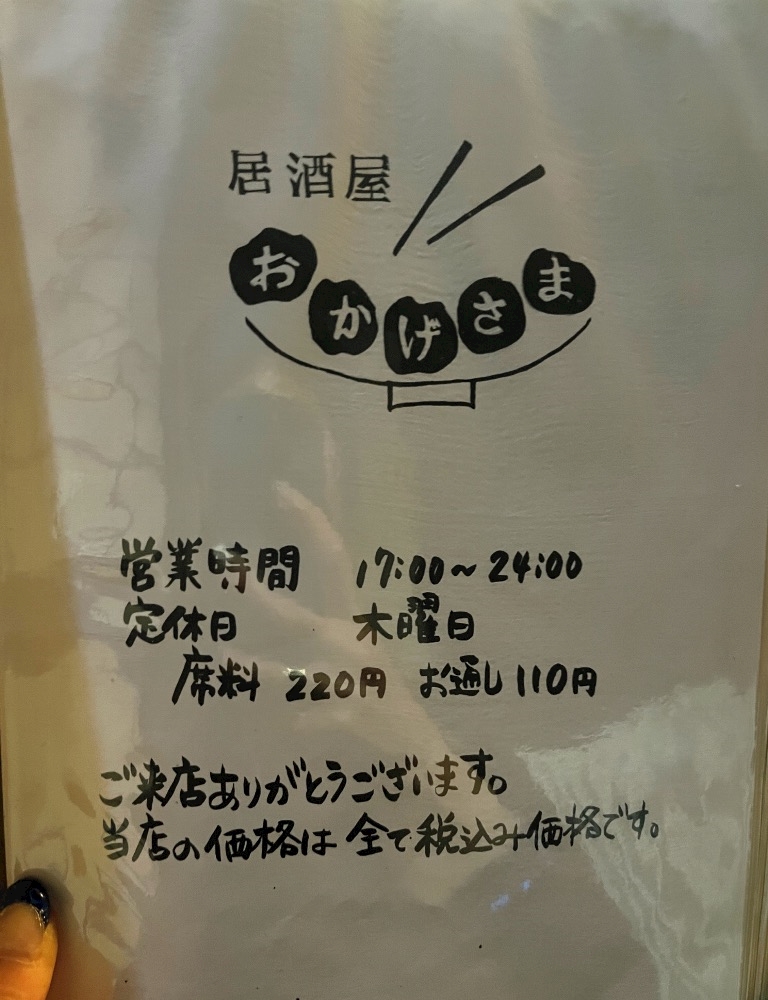 居酒屋
おかげさま
営業時間 17:00~24:00
定休日 木曜日
席料 220円 お通し110円
ご来店ありがとうございます。
当店の価格は全て税込み価格です。